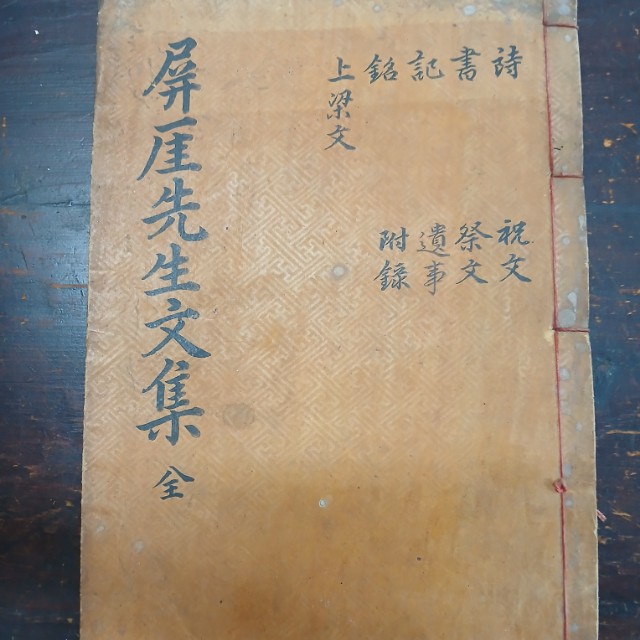 屏厓先生文集 全
詩
書
記
銘
上梁文
祝文
祭文
遺事
附錄